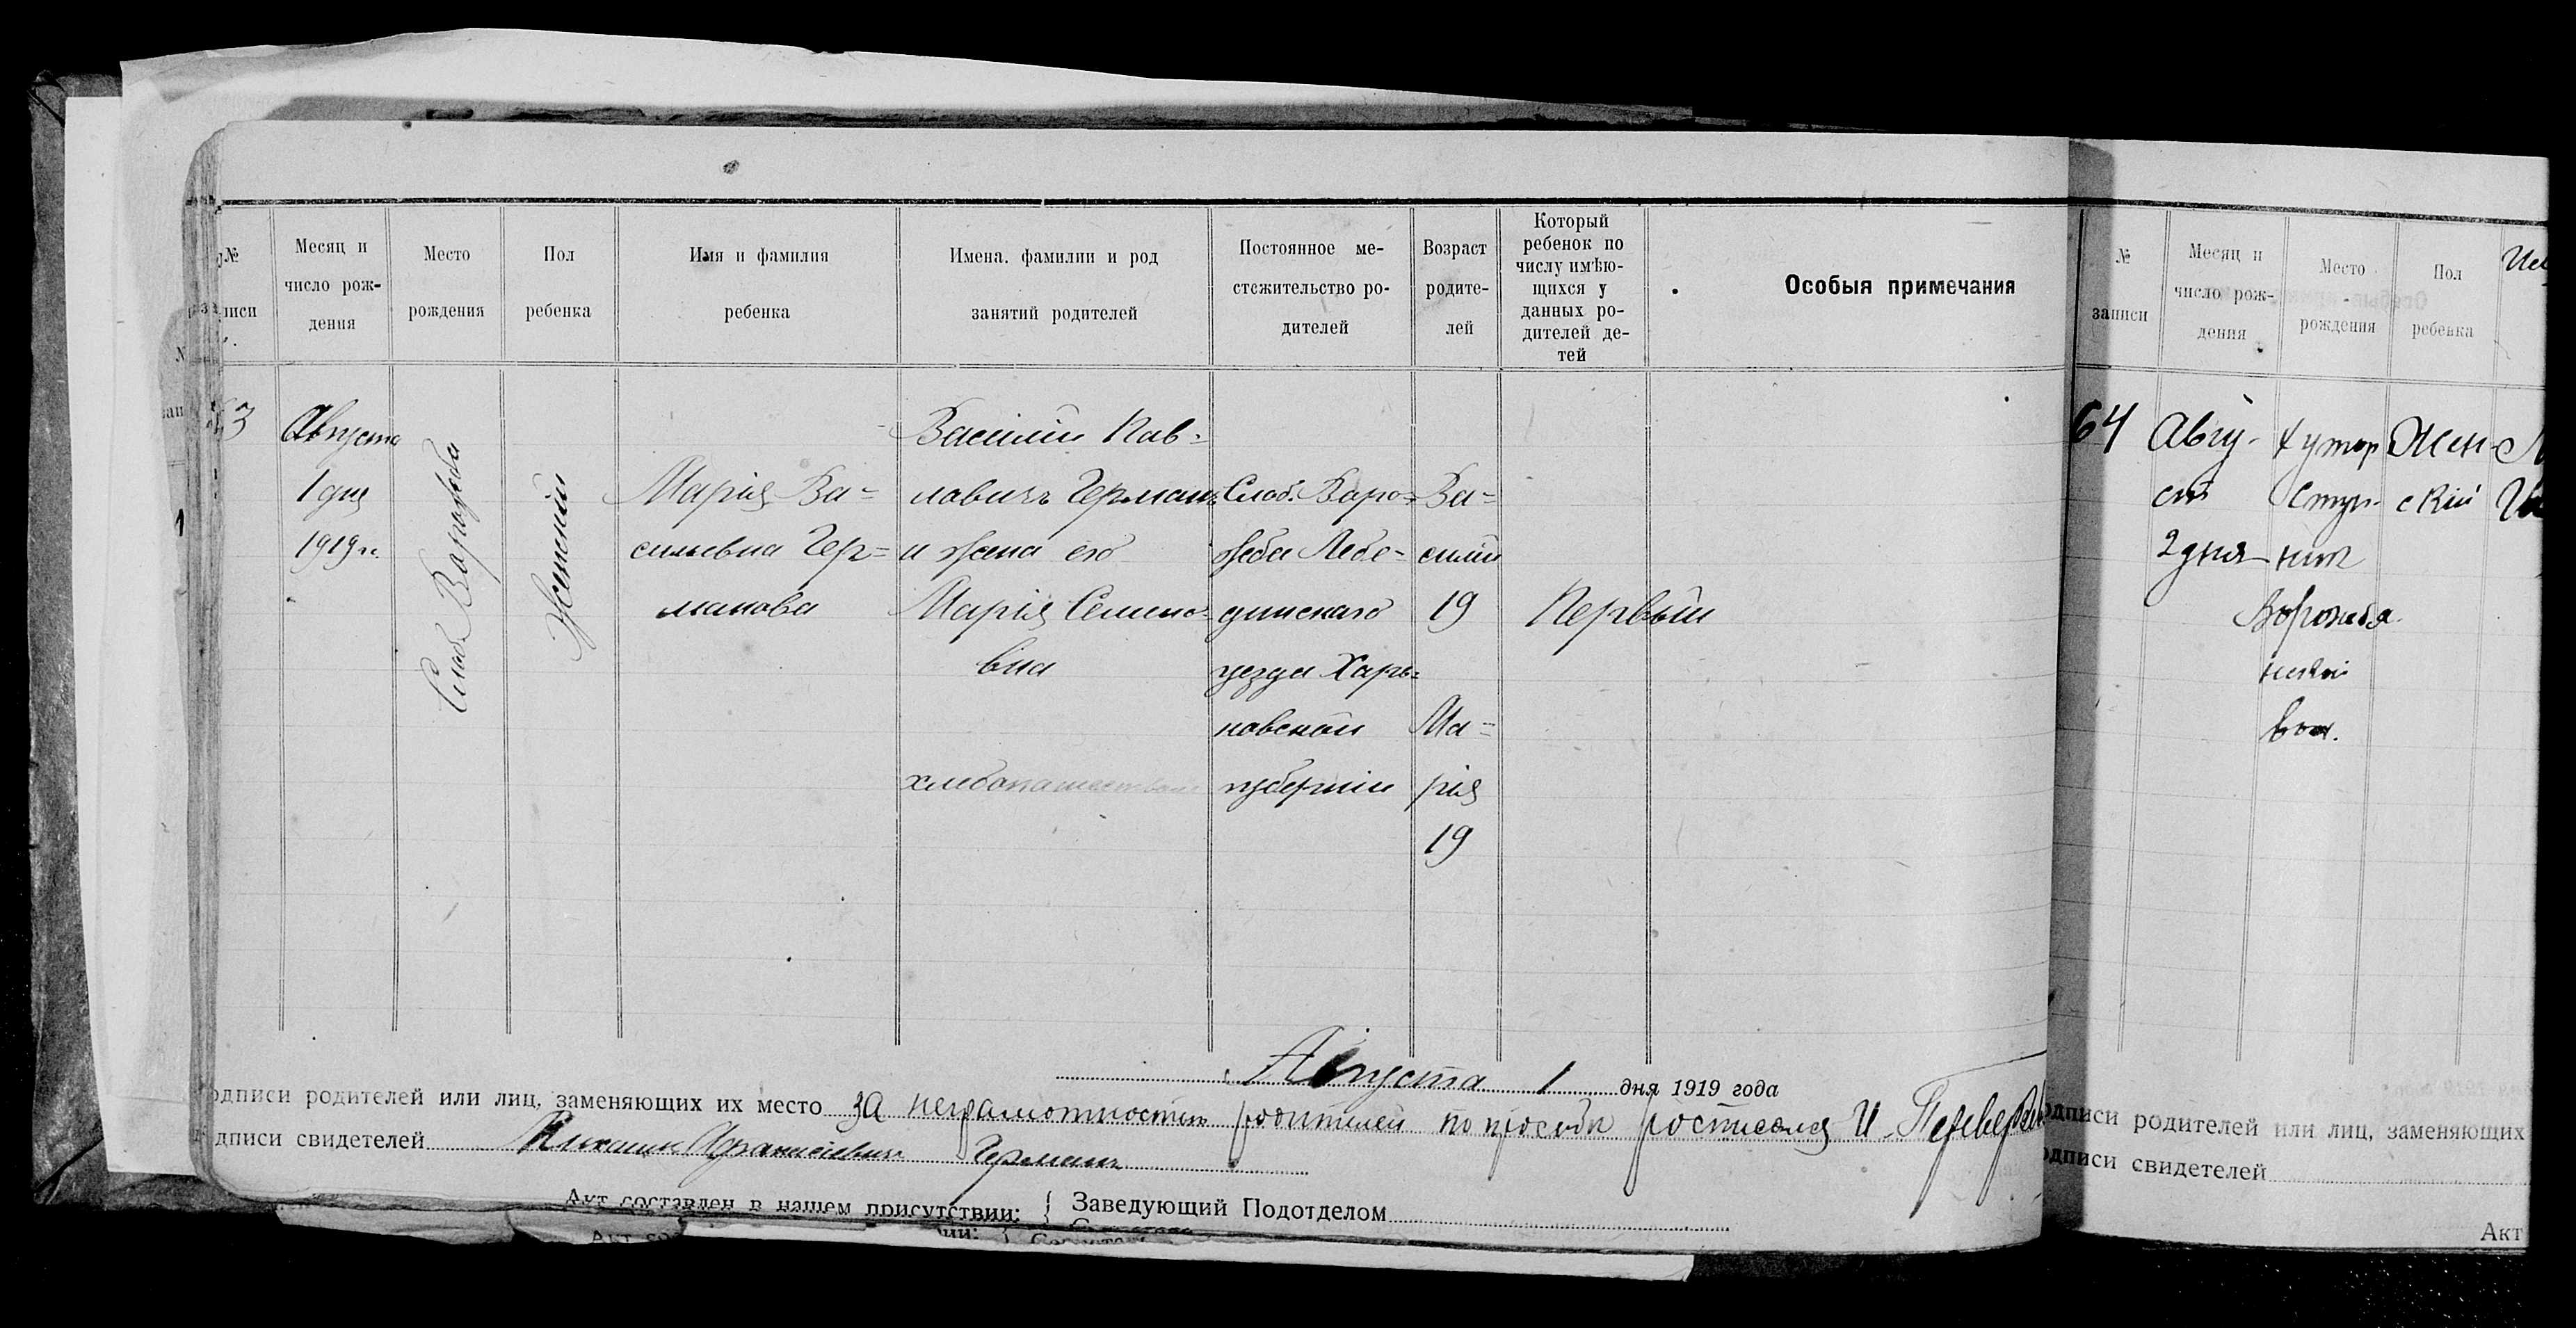 №
писи
Месяц и
число рож-
дения
Место
рождения
Пол
ребенка
Имя и фамилия
ребенка
Имена. фамилии и род
занятий родителей
Постоянное ме-
стожительство ро-
дителей
Возраст
родите-
лей
Который
ребенок по
числу имѣю-
щихся у
данных ро-
дителей де-
тей
Особыя примечания
3
Августа
1 дня
1919 г.
Слоб. Ворожба
Женский
Марія Ва-
сильевна Гер-
манова
Василий Пав-
ловичъ Германъ
и жена его
Марія Семено-
вна
хлебопашество
Слоб. Воро-
жба Лебе-
динскаго
уезда Харь-
ковской
губернии
Ва-
силий
19
Ма-
рія
19
Первый
Августа 1 дня 1919 года
одписи родителей или лиц, заменяющих их место за неграмотностью родителей по просьбе
дписи свидетелей Германъ
Акт составлен в нашем присутствии: { Заведующий Подотделом
№
записи
Месяц и
число рож-
дения
Место
рождения
Пол
ребенка
64
Авгу-
ст
2 дня
хутор
Ступ-
ник
вол.
Жен-
ский
одписи родителей или лиц, заменяющих
одписи свидетелей
Акт